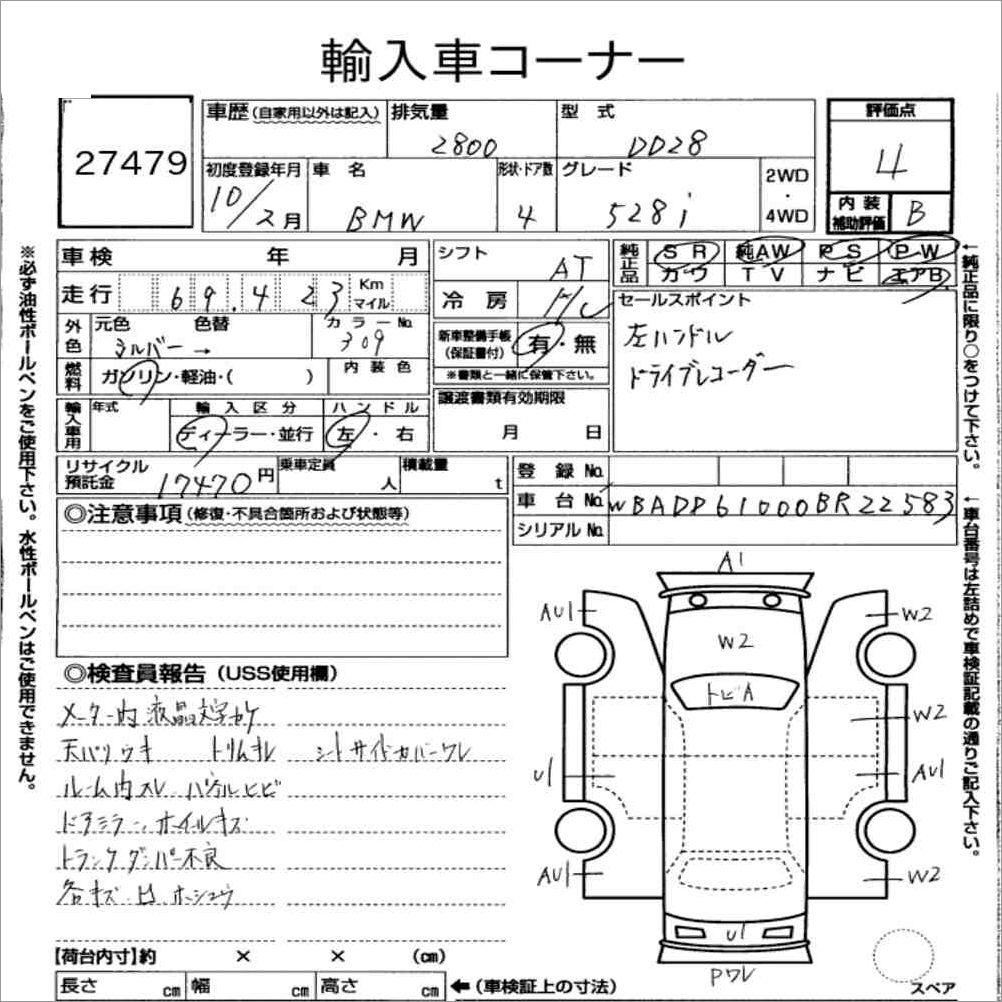 輸入車コーナー
27479
車歴(自家用以外は記入)
排気量
2800
型式
DD28
評価点
4
初度登録年月
10/2月
車名
BMW
形状・ドア数
4
グレード
528i
2WD
・
4WD
内装
補助評価
B
車検 年 月
走行 69.423 Km マイル
外色
元色 色替
シルバー →
カラーNo.
309
燃料
ガソリン・軽油・( )
内装色
輸入車用
年式
輸入区分
ディーラー・並行
ハンドル
左・右
シフト
AT
冷房
新車整備手帳
(保証書付)
有・無
※書類と一緒に保管下さい。
譲渡書類有効期限
月 日
純正品
SR 純AW PS P・W
カワ TV ナビ エアB
セールスポイント
左ハンドル
ドライブレコーダー
リサイクル
預託金
17470円
乗車定員
人
積載量
t
登録No.
車台No. WBADD61000BR22583
シリアルNo.
◎注意事項(修復・不具合箇所および状態等)
◎検査員報告(USS使用欄)
メーター内液晶文字カケ
天バリウキ トリムキレ シートサイドカバーワレ
ルーム内スレ パネルヒビ
ドアミラー、ホイールキズ
トランクダンパー不良
各キズ、凹、ホシュウ
A1
AU1
W2
W2
トビA
W2
U1
AU1
AU1
W2
U1
Pワレ
スペア
【荷台内寸】約 × × (cm)
長さ cm 幅 cm 高さ cm ←(車検証上の寸法)
※必ず油性ボールペンをご使用下さい。水性ボールペンはご使用できません。
←純正品に限り○をつけて下さい。
←車台番号は左詰めで車検証記載の通りご記入下さい。